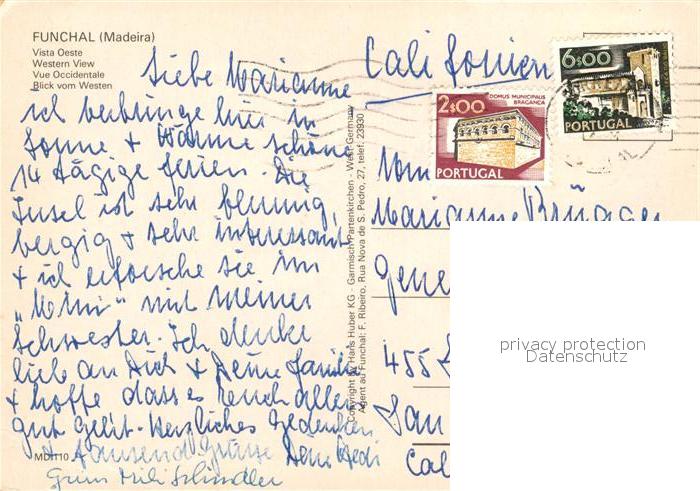 FUNCHAL (Madeira)
Vista Oeste
Western View
Vue Occidentale
Blick vom Westen
Californien
Liebe Marianne
ich verbringe hier in
Sonne + Wärme schöne
14 tägige ferien. Die
Insel ist sehr blumig,
bergig + sehr interessant
+ ich erforsche sie im
"Mini" mit meiner
Schwester. Ich denke
lieb an Dich + Deine familie
+ hoffe dass es euch allen
gut geht. Herzliches Gedenken
+ tausend Grüsse Deine Hedi
Gruss Mili Schindler
MDH10
Copyright by Hans Huber KG - Garmisch-Partenkirchen - West Germany
Agent au Funchal: F. Ribeiro, Rua Nova de S. Pedro, 27, telef. 23930
2$00
DOMUS MUNICIPALIS
BRAGANÇA
PORTUGAL
6$00
PORTUGAL
Marianne
Gene
455
San
Cal
privacy protection
Datenschutz